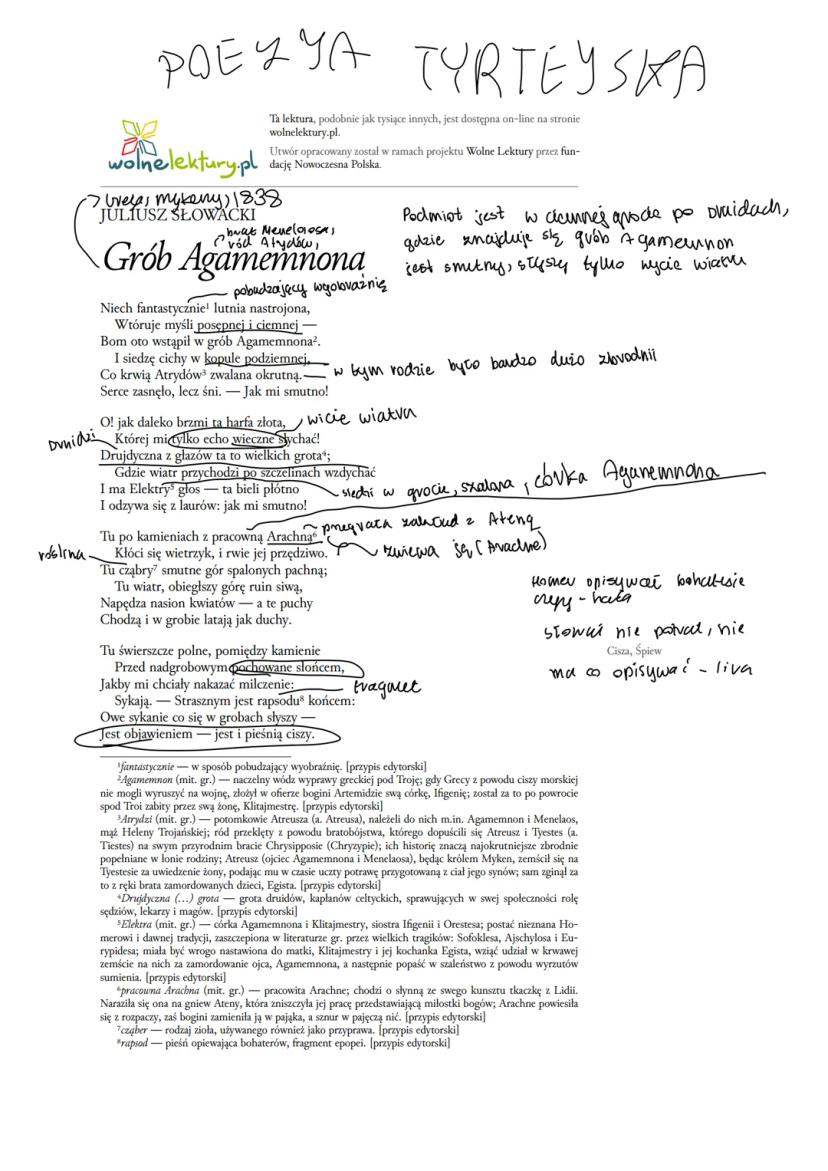 POEZYA TYRTEJSKA
Ta lektura, podobnie jak tysiące innych, jest dostępna on-line na stronie
wolnelektury.pl.
Utwór opracowany został w ramach projektu Wolne Lektury przez fun-
dację Nowoczesna Polska.
wolnelektury.pl
Grecja, Mykeny, 1838
JULIUSZ SŁOWACKI
brat Menelaosa,
ród Atrydów,
Grób Agamemnona
Podmiot jest w ciemnej grocie po Druidach,
gdzie znajduje się grób Agamemnon
jest smutny, słyszy tylko wycie wiatru
pobudzający wyobraźnię
Niech fantastycznie¹ lutnia nastrojona,
Wtóruje myśli posępnej i ciemnej —
Bom oto wstąpił w grób Agamemnona².
I siedzę cichy w kopule podziemnej,
Co krwią Atrydów³ zwalana okrutną.
w tym rodzie było bardzo dużo zbrodnii
Serce zasnęło, lecz śni. — Jak mi smutno!
O! jak daleko brzmi ta harfa złota,
wicie wiatru
Druidzi
Której mi tylko echo wieczne słychać!
Drujdyczna z głazów ta to wielkich grota⁴;
Gdzie wiatr przychodzi po szczelinach wzdychać
I ma Elektry⁵ głos — ta bieli płótno
siedzi w grocie, szalona, córka Agamemnona
I odzywa się z laurów: jak mi smutno!
Tu po kamieniach z pracowną Arachną⁶
przegrała zakład z Ateną
roślina
Kłóci się wietrzyk, i rwie jej przędziwo.
zwiewa ją (Arachne)
Tu cząbry⁷ smutne gór spalonych pachną;
Tu wiatr, obiegłszy górę ruin siwą,
Napędza nasion kwiatów — a te puchy
Chodzą i w grobie latają jak duchy.
Homer opisywał bohaterie
czepy - harfa
Tu świerszcze polne, pomiędzy kamienie
Przed nadgrobowym pochowane słońcem,
Jakby mi chciały nakazać milczenie:
fragment
Sykają. — Strasznym jest rapsodu⁸ końcem:
Owe sykanie co się w grobach słyszy —
Jest objawieniem — jest i pieśnią ciszy.
słowacki nie potrafi, nie
Cisza, Śpiew
ma co opisywać - lira
¹fantastycznie — w sposób pobudzający wyobraźnię. [przypis edytorski]
²Agamemnon (mit. gr.) — naczelny wódz wyprawy greckiej pod Troję; gdy Grecy z powodu ciszy morskiej
nie mogli wyruszyć na wojnę, złożył w ofierze bogini Artemidzie swą córkę, Ifigenię; został za to po powrocie
spod Troi zabity przez swą żonę, Klitajmestrę. [przypis edytorski]
³Atrydzi (mit. gr.) — potomkowie Atreusza (a. Atreusa), należeli do nich m.in. Agamemnon i Menelaos,
mąż Heleny Trojańskiej; ród przeklęty z powodu bratobójstwa, którego dopuścili się Atreusz i Tyestes (a.
Tiestes) na swym przyrodnim bracie Chrysipposie (Chryzypie); ich historię znaczą najokrutniejsze zbrodnie
popełniane w łonie rodziny; Atreusz (ojciec Agamemnona i Menelaosa), będąc królem Myken, zemścił się na
Tyestesie za uwiedzenie żony, podając mu w czasie uczty potrawę przygotowaną z ciał jego synów; sam zginął za
to z ręki brata zamordowanych dzieci, Egista. [przypis edytorski]
⁴Drujdyczna (…) grota — grota druidów, kapłanów celtyckich, sprawujących w swej społeczności rolę
sędziów, lekarzy i magów. [przypis edytorski]
⁵Elektra (mit. gr.) — córka Agamemnona i Klitajmestry, siostra Ifigenii i Orestesa; postać nieznana Ho-
merowi i dawnej tradycji, zaszczepiona w literaturze gr. przez wielkich tragików: Sofoklesa, Ajschylosa i Eu-
rypidesa; miała być wrogo nastawiona do matki, Klitajmestry i jej kochanka Egista, wziąć udział w krwawej
zemście na nich za zamordowanie ojca, Agamemnona, a następnie popaść w szaleństwo z powodu wyrzutów
sumienia. [przypis edytorski]
⁶pracowna Arachna (mit. gr.) — pracowita Arachne; chodzi o słynną ze swego kunsztu tkaczkę z Lidii.
Naraziła się ona na gniew Ateny, która zniszczyła jej pracę przedstawiającą miłostki bogów; Arachne powiesiła
się z rozpaczy, zaś bogini zamieniła ją w pająka, a sznur w pajęczą nić. [przypis edytorski]
⁷cząber — rodzaj zioła, używanego również jako przyprawa. [przypis edytorski]
⁸rapsod — pieśń opiewająca bohaterów, fragment epopei. [przypis edytorski]